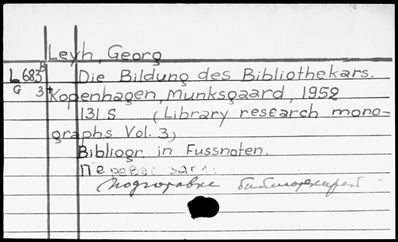 Leyh, Georg
L 683 Die Bildung des Bibliothekars.
G 3+ Kopenhagen, Munksgaard, 1952
131 S (Library research mono-
graphs Vol. 3)
Bibliogr. in Fussnoten.
подготовке библиотекарей